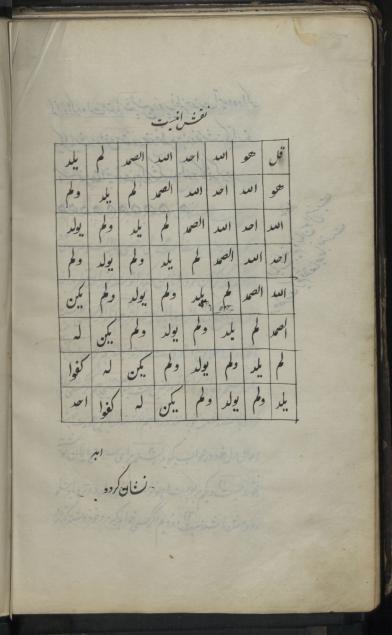 نقش اینست
قل هو الله احد الله الصمد لم یلد
هو الله احد الله الصمد لم یلد ولم
الله احد الله الصمد لم یلد ولم یولد
احد الله الصمد لم یلد ولم یولد ولم
الله الصمد لم یلد ولم یولد ولم یکن
الصمد لم یلد ولم یولد ولم یکن له
لم یلد ولم یولد ولم یکن له کفوا
یلد ولم یولد ولم یکن له کفوا احد